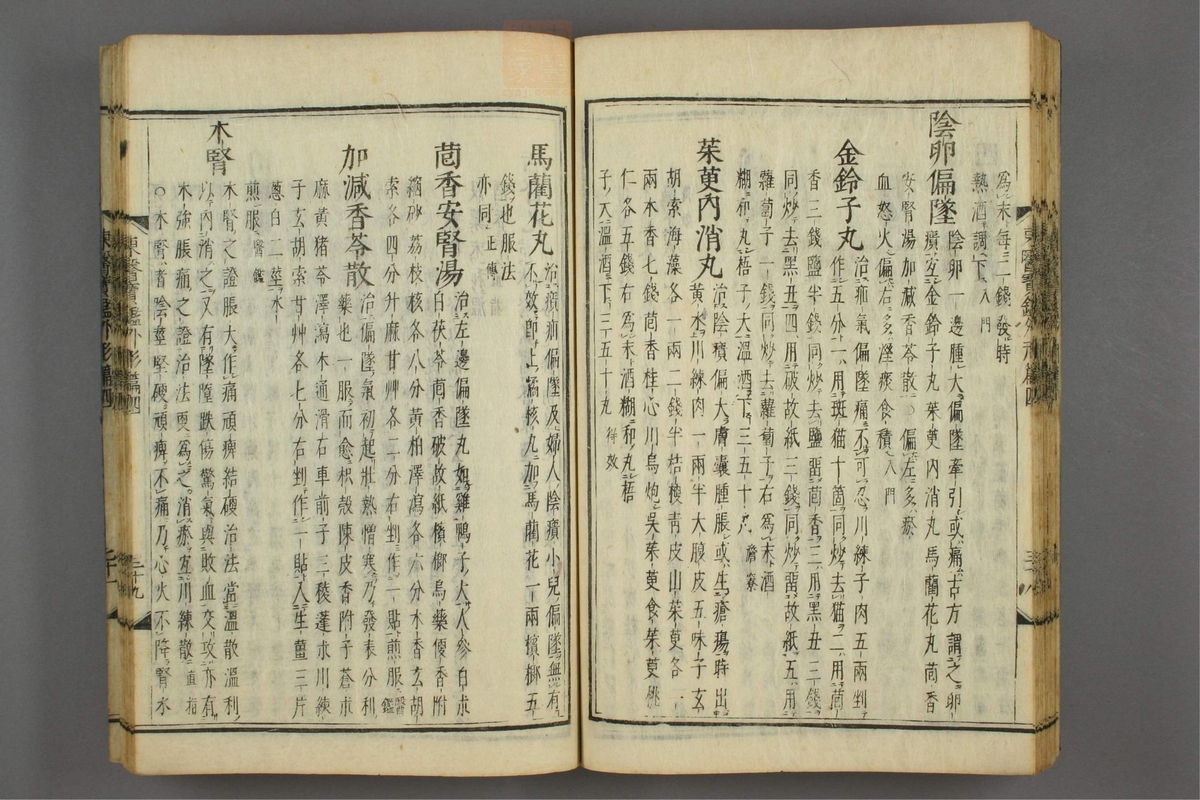 爲末每三錢發時
熱酒調下入門
陰卵偏墜
陰卵一邊腫大偏墜牽引或痛古方謂之卵
㿉宜金鈴子丸茱萸內消丸馬藺花丸茴香
安腎湯加減香苓散○偏左多瘀
血怒火偏右多濕痰食積入門
金鈴子丸
治疝氣偏墜痛不可忍川練子肉五兩剉
作五分一用斑猫十箇同炒去猫二用茴
香三錢鹽半錢同炒去鹽畱茴香三用黑丑三錢
同炒去黑丑四用破故紙三錢同炒畱故紙五用
蘿蔔子一錢同炒去蘿蔔子右爲末酒
糊和丸梧子大溫酒下三五十丸澹寮
茱萸內消丸
治陰㿉偏大膚囊腫脹或生瘡瘍時出
黃水川練肉一兩半大腹皮五味子玄
胡索海藻各一兩二錢半桔梗靑皮山茱萸各一
兩木香七錢茴香桂心川烏炮吳茱萸食茱萸桃
仁各五錢右爲末酒糊和丸梧
子大溫酒下三五十丸得效
東醫寶鑑外形篇四
三十八
馬藺花丸
治㿉疝偏墜及婦人陰㿉小兒偏墜無有
不效卽上橘核丸加馬藺花一兩檳榔五
錢也服法
亦同正傳
茴香安腎湯
治左邊偏墜丸如雞鴨子大人參白朮
白茯苓茴香破故紙檳榔烏藥便香附
縮砂荔枝核各八分黃柏澤瀉各六分木香玄胡
索各四分升麻甘艸各二分右剉作一貼煎服醫鑑
加減香苓散
治偏墜氣初起壯熱憎寒乃發表分利
藥也一服而愈枳殼陳皮香附子蒼朮
麻黃猪苓澤瀉木通滑石車前子三稜蓬朮川練
子玄胡索甘艸各七分右剉作一貼入生薑三片
葱白二莖水
煎服醫鑑
木腎
木腎之證脹大作痛頑痺結硬治法當溫散溫利
以內消之又有墜墮跌傷驚氣與敗血交攻亦有
木強脹痛之證治法更爲之消瘀宜川練散直指
○木腎者陰莖堅硬頑痺不痛乃心火不降腎水
東醫寶鑑外形篇四
三十九